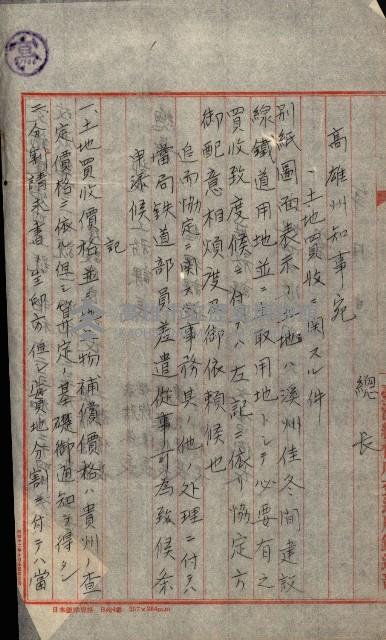 高雄州知事宛
總長
土地買收ニ関スル件
別紙圖面表示ノ土地ハ溪州佳冬間建設
線鐵道用地並ニ土取用地トシテ必要有之
買收致度候ニ付テハ左記ニ依リ協定方
御配意相煩度及御依頼候也
追而協定ニ関スル事務其ノ他ノ処理ニ付テハ
當局鉄道部員差遣從事可為致候条
申添候
記
一、土地買收價格並ニ地上物補償價格ハ貴州ノ査
定價格ニ依ル但シ査定ノ基礎御通知ヲ得タシ
二、分割請求書ノ生ハ但シ買地分割ニ付テハ當